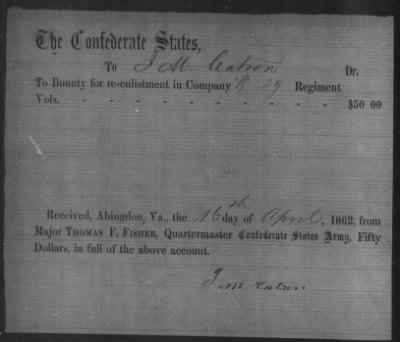 The Confederate States,
To J M Catron Dr.
To Bounty for re-enlistment in Company 29 Regiment
Vols. - - - - - - - - - $50 00
Received, Abingdon, Va., the 16th day of April, 1862, from
Major THOMAS F. FISHER, Quartermaster Confederate States Army, Fifty
Dollars, in full of the above account.
J M Catron